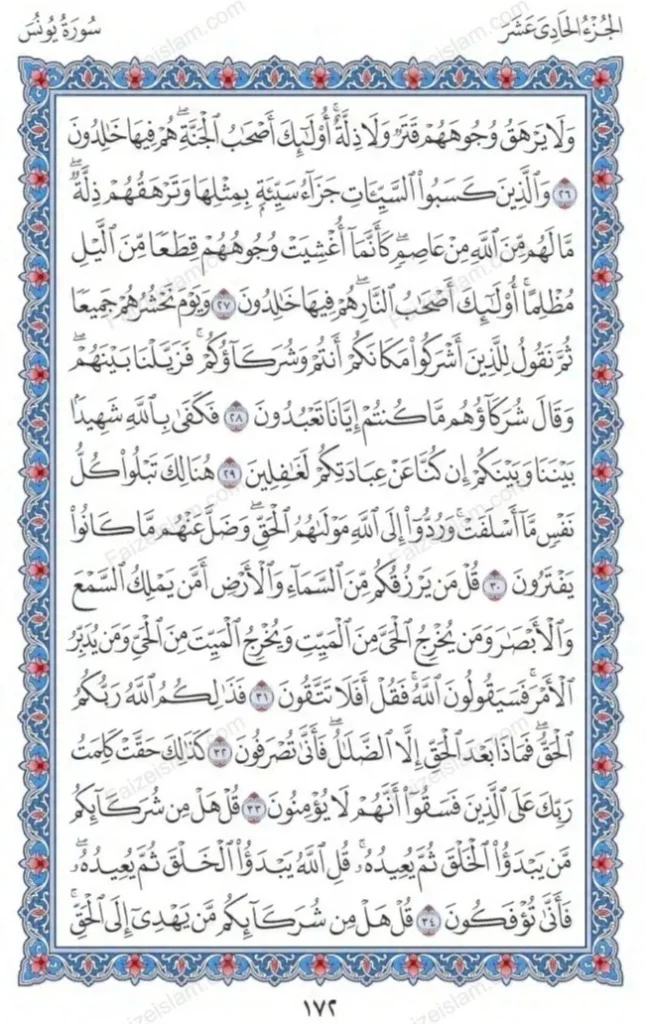 الجُزْءُ الحَادِى عَشَرَ
سُورَةُ يُونُسَ
وَلَا يَرْهَقُ وُجُوهَهُمْ قَتَرٌ وَلَا ذِلَّةٌ ۚ أُو۟لَٰٓئِكَ أَصْحَٰبُ الْجَنَّةِ ۖ هُمْ فِيهَا خَٰلِدُونَ
٢٦ وَالَّذِينَ كَسَبُوا۟ السَّيِّـَٔاتِ جَزَآءُ سَيِّئَةٍۭ بِمِثْلِهَا وَتَرْهَقُهُمْ ذِلَّةٌ ۖ
مَّا لَهُم مِّنَ اللَّهِ مِنْ عَاصِمٍ ۖ كَأَنَّمَآ أُغْشِيَتْ وُجُوهُهُمْ قِطَعًا مِّنَ الَّيْلِ
مُظْلِمًا ۚ أُو۟لَٰٓئِكَ أَصْحَٰبُ النَّارِ ۖ هُمْ فِيهَا خَٰلِدُونَ ٢٧ وَيَوْمَ نَحْشُرُهُمْ جَمِيعًا
ثُمَّ نَقُولُ لِلَّذِينَ أَشْرَكُوا۟ مَكَانَكُمْ أَنتُمْ وَشُرَكَآؤُكُمْ ۚ فَزَيَّلْنَا بَيْنَهُمْ ۖ
وَقَالَ شُرَكَآؤُهُم مَّا كُنتُمْ إِيَّانَا تَعْبُدُونَ ٢٨ فَكَفَىٰ بِاللَّهِ شَهِيدًۢا
بَيْنَنَا وَبَيْنَكُمْ إِن كُنَّا عَنْ عِبَادَتِكُمْ لَغَٰفِلِينَ ٢٩ هُنَالِكَ تَبْلُوا۟ كُلُّ
نَفْسٍ مَّآ أَسْلَفَتْ ۚ وَرُدُّوٓا۟ إِلَى اللَّهِ مَوْلَىٰهُمُ الْحَقِّ ۖ وَضَلَّ عَنْهُم مَّا كَانُوا۟
يَفْتَرُونَ ٣٠ قُلْ مَن يَرْزُقُكُم مِّنَ السَّمَآءِ وَالْأَرْضِ أَمَّن يَمْلِكُ السَّمْعَ
وَالْأَبْصَٰرَ وَمَن يُخْرِجُ الْحَىَّ مِنَ الْمَيِّتِ وَيُخْرِجُ الْمَيِّتَ مِنَ الْحَىِّ وَمَن يُدَبِّرُ
الْأَمْرَ ۚ فَسَيَقُولُونَ اللَّهُ ۚ فَقُلْ أَفَلَا تَتَّقُونَ ٣١ فَذَٰلِكُمُ اللَّهُ رَبُّكُمُ
الْحَقُّ ۖ فَمَاذَا بَعْدَ الْحَقِّ إِلَّا الضَّلَٰلُ ۖ فَأَنَّىٰ تُصْرَفُونَ ٣٢ كَذَٰلِكَ حَقَّتْ كَلِمَتُ
رَبِّكَ عَلَى الَّذِينَ فَسَقُوٓا۟ أَنَّهُمْ لَا يُؤْمِنُونَ ٣٣ قُلْ هَلْ مِن شُرَكَآئِكُم
مَّن يَبْدَؤُا۟ الْخَلْقَ ثُمَّ يُعِيدُهُۥ ۚ قُلِ اللَّهُ يَبْدَؤُا۟ الْخَلْقَ ثُمَّ يُعِيدُهُۥ ۖ
فَأَنَّىٰ تُؤْفَكُونَ ٣٤ قُلْ هَلْ مِن شُرَكَآئِكُم مَّن يَهْدِىٓ إِلَى الْحَقِّ ۚ
١٧٢
Faizeislam.com